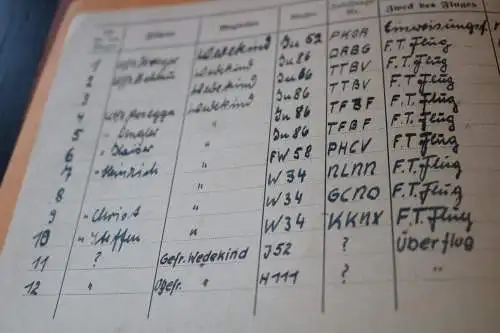 Zweck des Fluges
1 Wedekind Ju 52 PKOA Einweisungsf.
2 Wedekind Ju 86 DABG F.T. Flug
3 Wedekind Ju 86 TTBV F.T. Flug
4 Wedekind Ju 86 TTBV F.T. Flug
5 " Ju 86 TFBF F.T. Flug
6 " " Ju 86 TFBF F.T. Flug
7 " Heinrich " FW 58 PHCV F.T. Flug
8 W 34 F.T. Flug
9 " Christ " W 34 GCNO F.T. Flug
10 " Steffen " W 34 KKNX F.T. Flug
11 ? Gefr. Wedekind J52 ? Überflug
12 " Ogefr. " H111 ? "